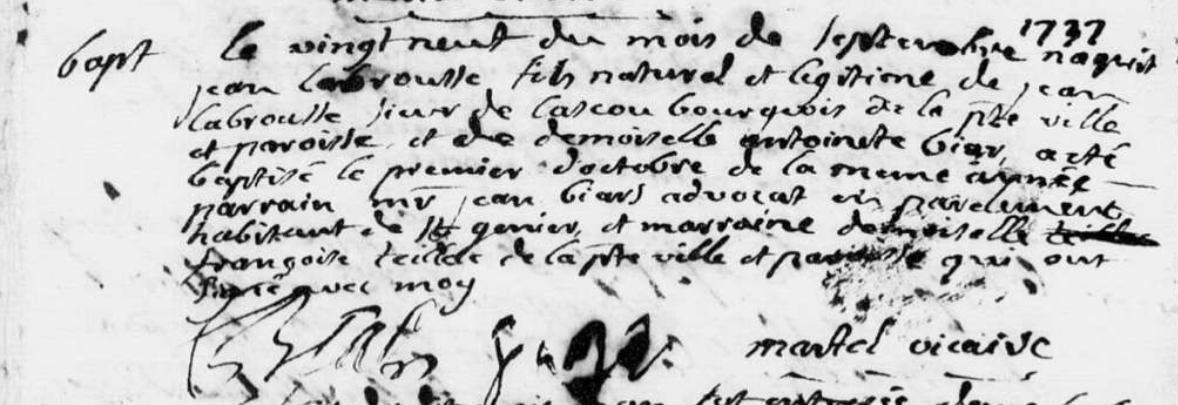 1737
bapt le vingt neuf du mois de septembre naquit
jean labrousse fils naturel et legitime de jean
labrousse sieur de lascou bourgeois de la pnte ville
et paroisse, et de demoiselle antoinete biar, a eté
baptisé le premier d'octobre de la meme année
parrain mr jean biars advocat en parelement
habitant de st genier, et marraine demoiselle
françoise teillac de la pnte ville et paroisse qui ont
signé avec moy
martel vicaire